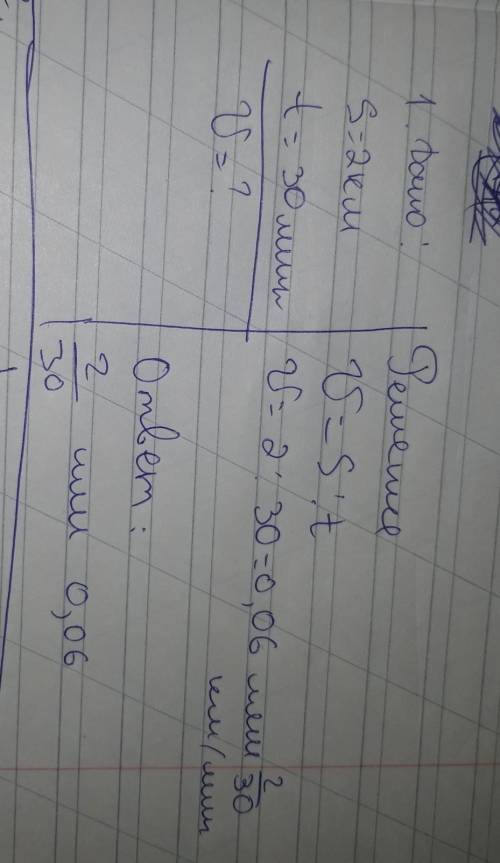 1. Дано:
S = 2 км
t = 30 мин
V = ?
Решение
V = S : t
V = 2 : 30 = 0,06 или 2/30 км/мин
Ответ:
2/30 или 0,06